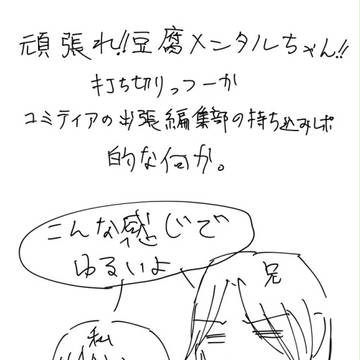 頑張れ!!豆腐メンタルちゃん!!
打ち切りっつーか
コミティアの出張編集部の持ち込みレポ
的な何か。
こんな感じで
ゆるいよ
兄
私